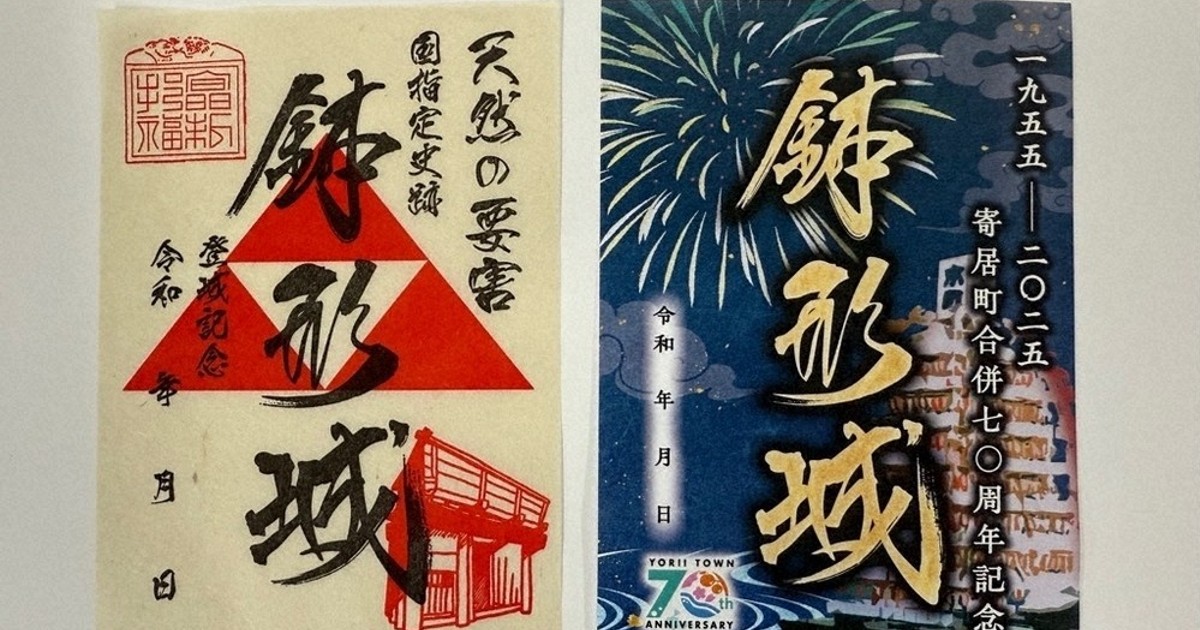 天然の要害
国指定史跡
鉢形城
登城記念
令和 年 月 日
一九五五―二〇二五
寄居町合併七〇周年記念
鉢形城
令和 年 月 日
YORII TOWN
70th
ANNIVERSARY